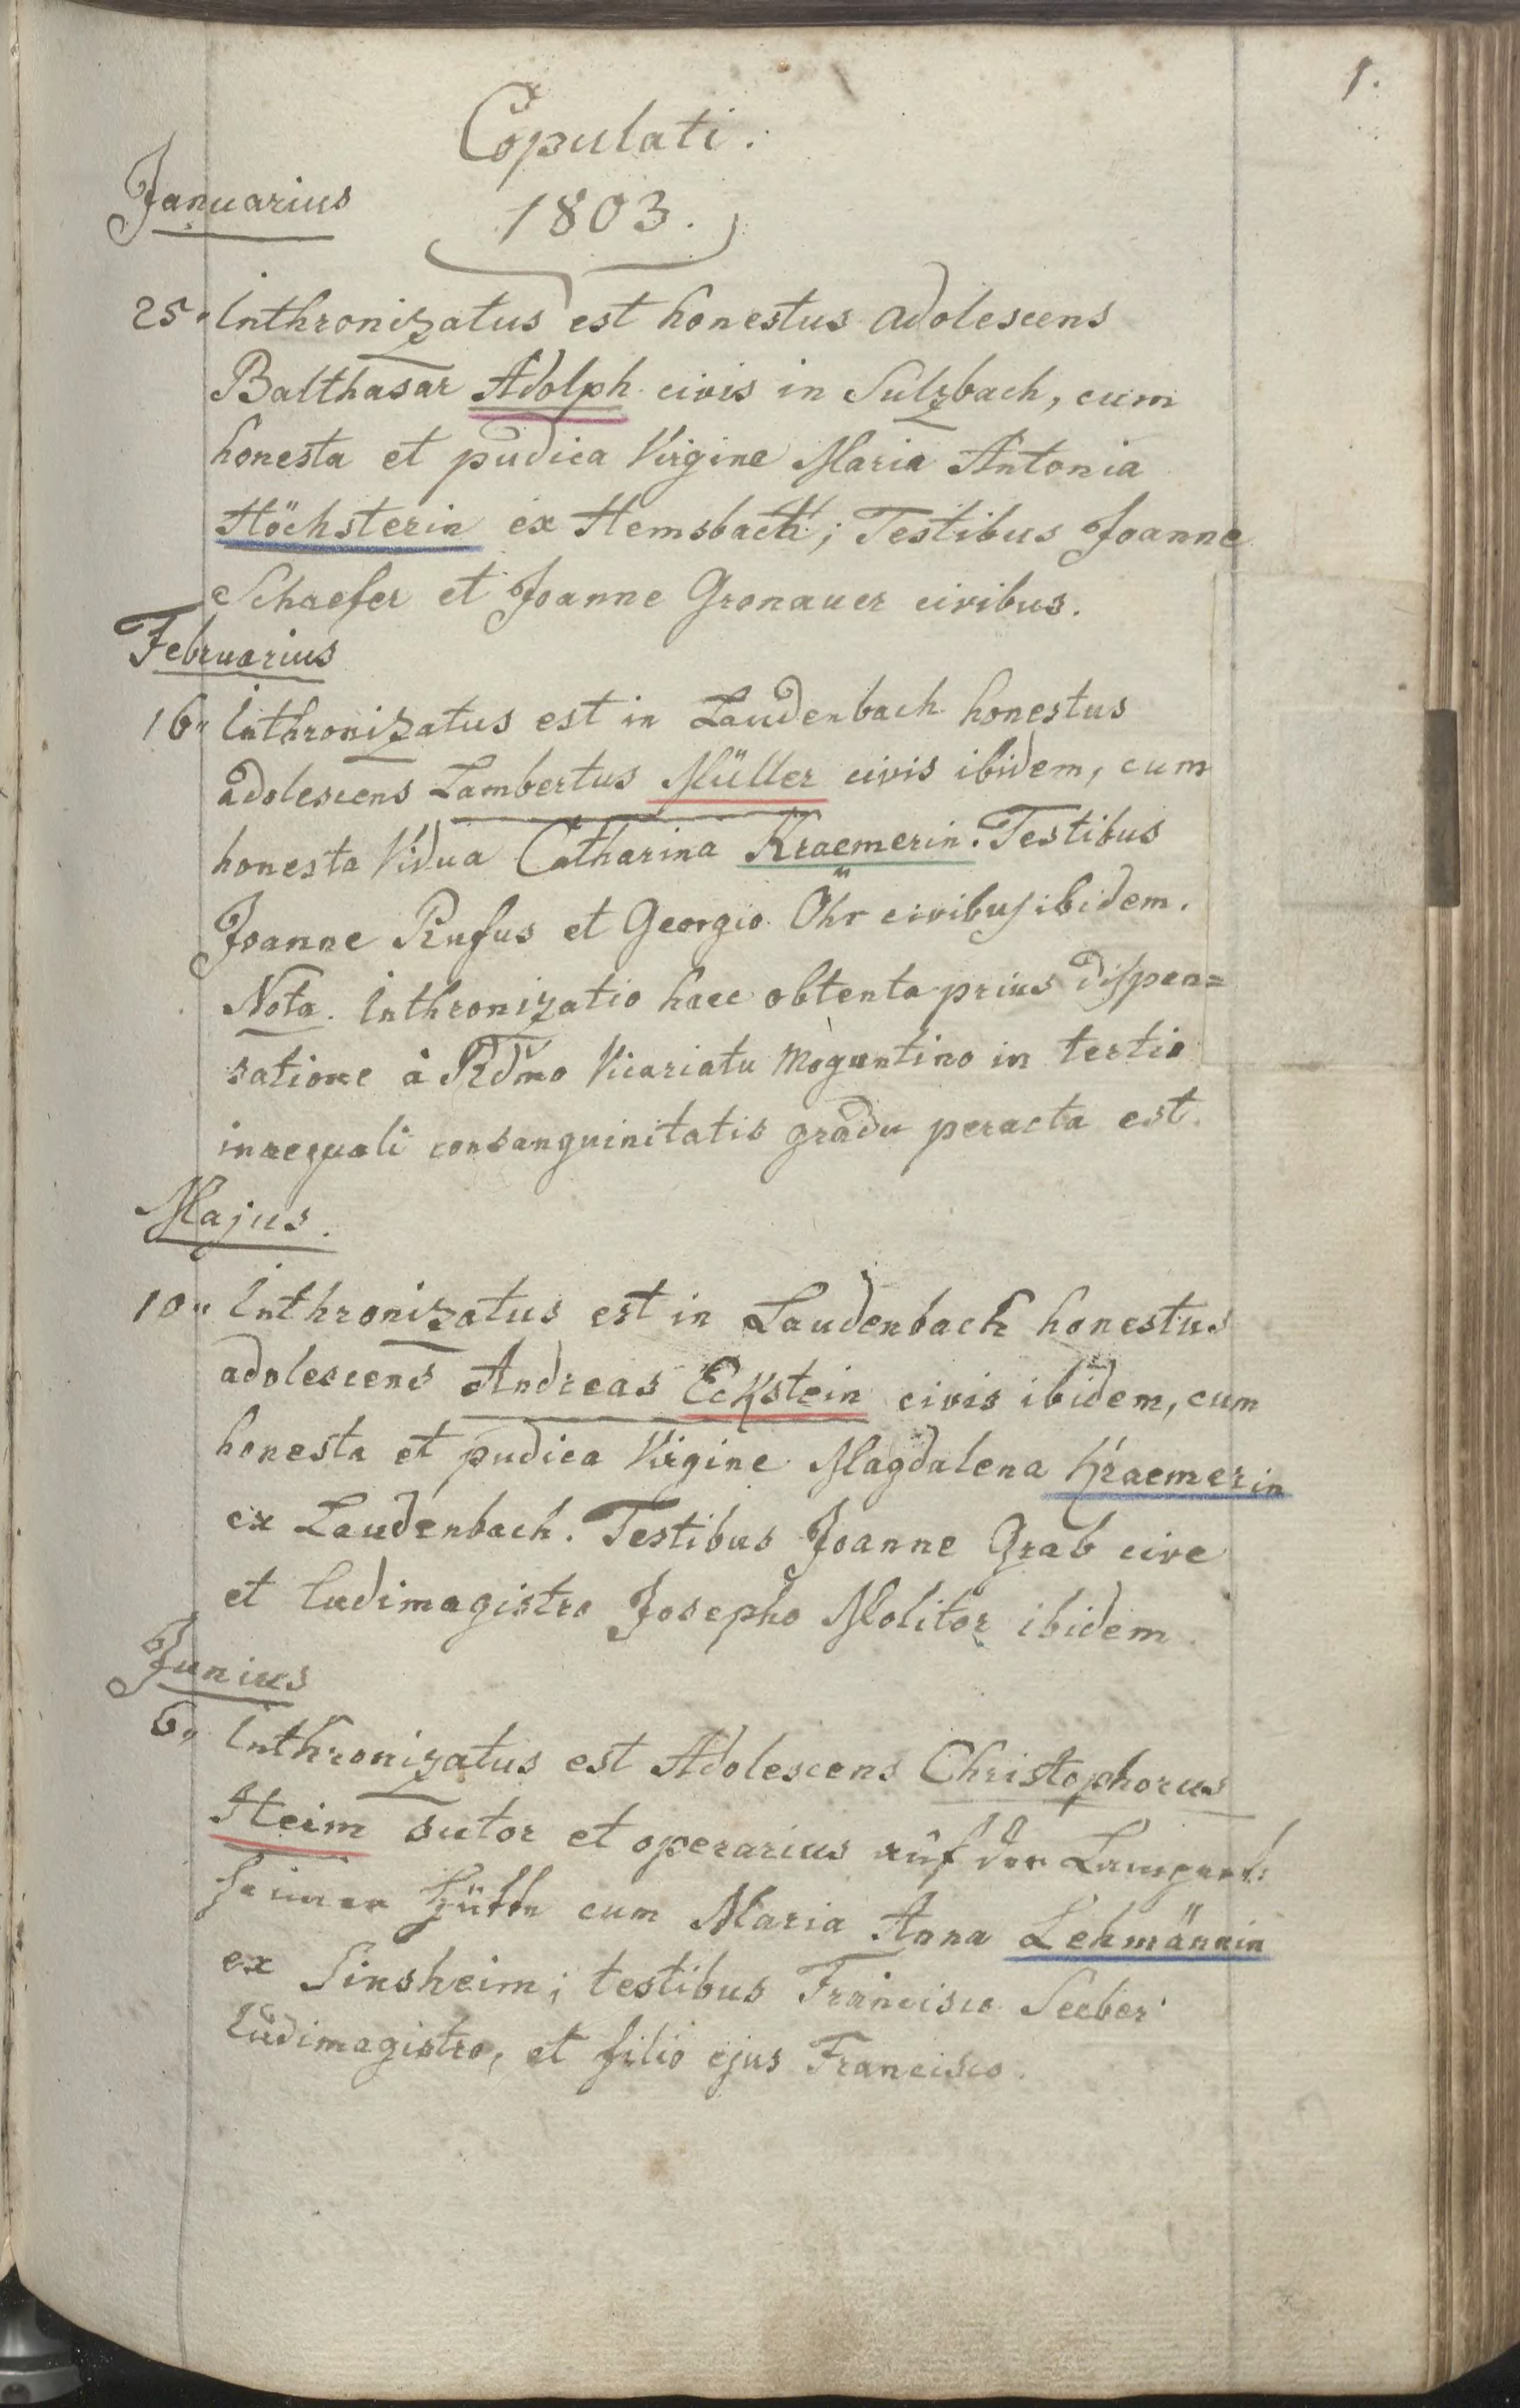 1.
Copulati.
Januarius
1803.
25. Inthronizatus est honestus adolescens
Balthasar Adolph civis in Sulzbach, cum
honesta et pudica Virgine Maria Antonia
Höchsterin ex Hemsbach; Testibus Joanne
Schaefer et Joanne Gronauer civibus.
Februarius
16" Inthronizatus est in Laudenbach honestus
adolescens Lambertus Müller civis ibidem, cum
honesta Vidua Catharina Kraemerin. Testibus
Joanne Rufus et Georgio Öhr civibus ibidem.
Nota. Inthronizatio haec obtenta prius dispen=
satione à Rdmo Vicariatu Moguntino in tertio
inaequali consanguinitatis gradu peracta est.
Majus.
10" Inthronizatus est in Laudenbach honestus
adolescens Andreas Eckstein civis ibidem, cum
honesta et pudica Virgine Magdalena Kraemerin
ex Laudenbach. Testibus Joanne Grab cive
et ludimagistro Josepho Molitor ibidem.
Junius
6" Inthronizatus est Adolescens Christophorus
Heim sutor et operarius auf der Lampert:
heimer Hütte cum Maria Anna Lehmännin
ex Sinsheim; testibus Francisco Seeber
Ludimagistro, et filio ejus Francisco.